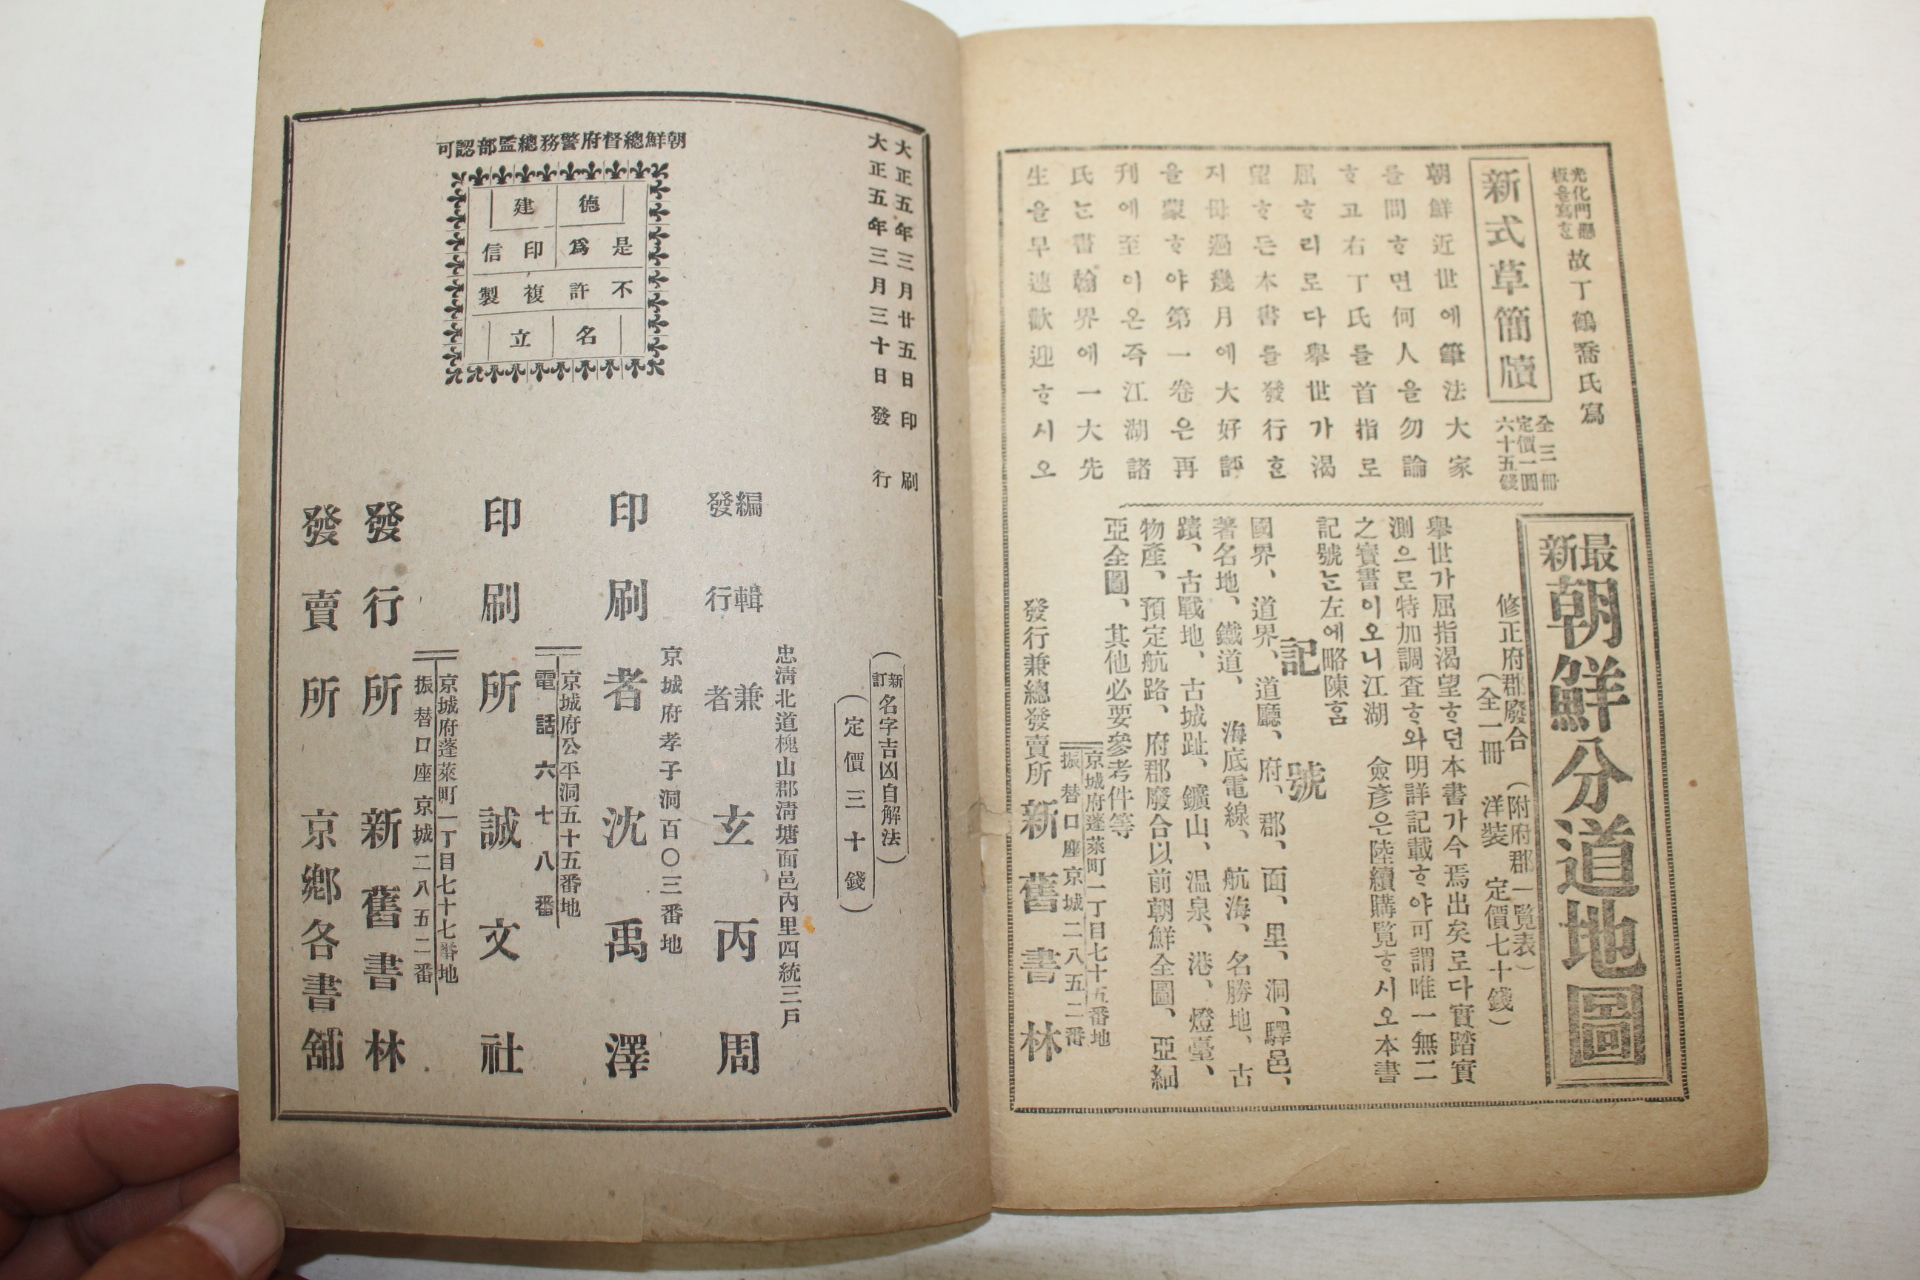 光化門懸
板을寫ᄒᆞᆫ
故丁鶴喬氏寫
新式草簡牘
全三冊
定價一圓
六十五錢
朝鮮近世에筆法大家
를問ᄒᆞ면何人을勿論
ᄒᆞ고右丁氏를首指로
屈ᄒᆞ리로다擧世가渴
望ᄒᆞ든本書를發行ᄒᆞᆫ
지毋過幾月에大好評
을蒙ᄒᆞ야第一卷은再
刊에至이온즉江湖諸
氏ᄂᆞᆫ書翰界에一大先
生을早速歡迎ᄒᆞ시오
最新
朝鮮分道地圖
修正府郡廢合
(附府郡一覽表)
(全一冊 洋裝 定價七十錢)
擧世가屈指渴望ᄒᆞ던本書가今焉出矣로다實踏實
測으로特加調査ᄒᆞ와明詳記載ᄒᆞ야可謂唯一無二
之寶書이오니江湖 僉彥은陸續購覽ᄒᆞ시오本書
記號ᄂᆞᆫ左에略陳홈
記號
國界、道界、道廳、府、郡、面、里、洞、驛邑、
著名地、鐵道、海底電線、航海、名勝地、古
蹟、古戰地、古城趾、鑛山、温泉、港、燈臺、
物產、預定航路、府郡廢合以前朝鮮全圖、亞細
亞全圖、其他必要參考件等
京城府蓬萊町一丁目七十五番地
振替口座京城二八五二番
發行兼總發賣所 新舊書林
朝鮮總督府警務總監部認可
德建
是爲印信
不許複製
名立
大正五年三月廿五日印刷
大正五年三月三十日發行
(新訂 名字吉凶自解法)
(定價三十錢)
忠淸北道槐山郡淸塘面邑內里四統三戶
編輯兼
發行者 玄丙周
京城府孝子洞百〇三番地
印刷者 沈禹澤
京城府公平洞五十五番地
電話六七八番
印刷所 誠文社
京城府蓬萊町一丁目七十七番地
振替口座京城二八五二番
發行所 新舊書林
發賣所 京鄉各書舖